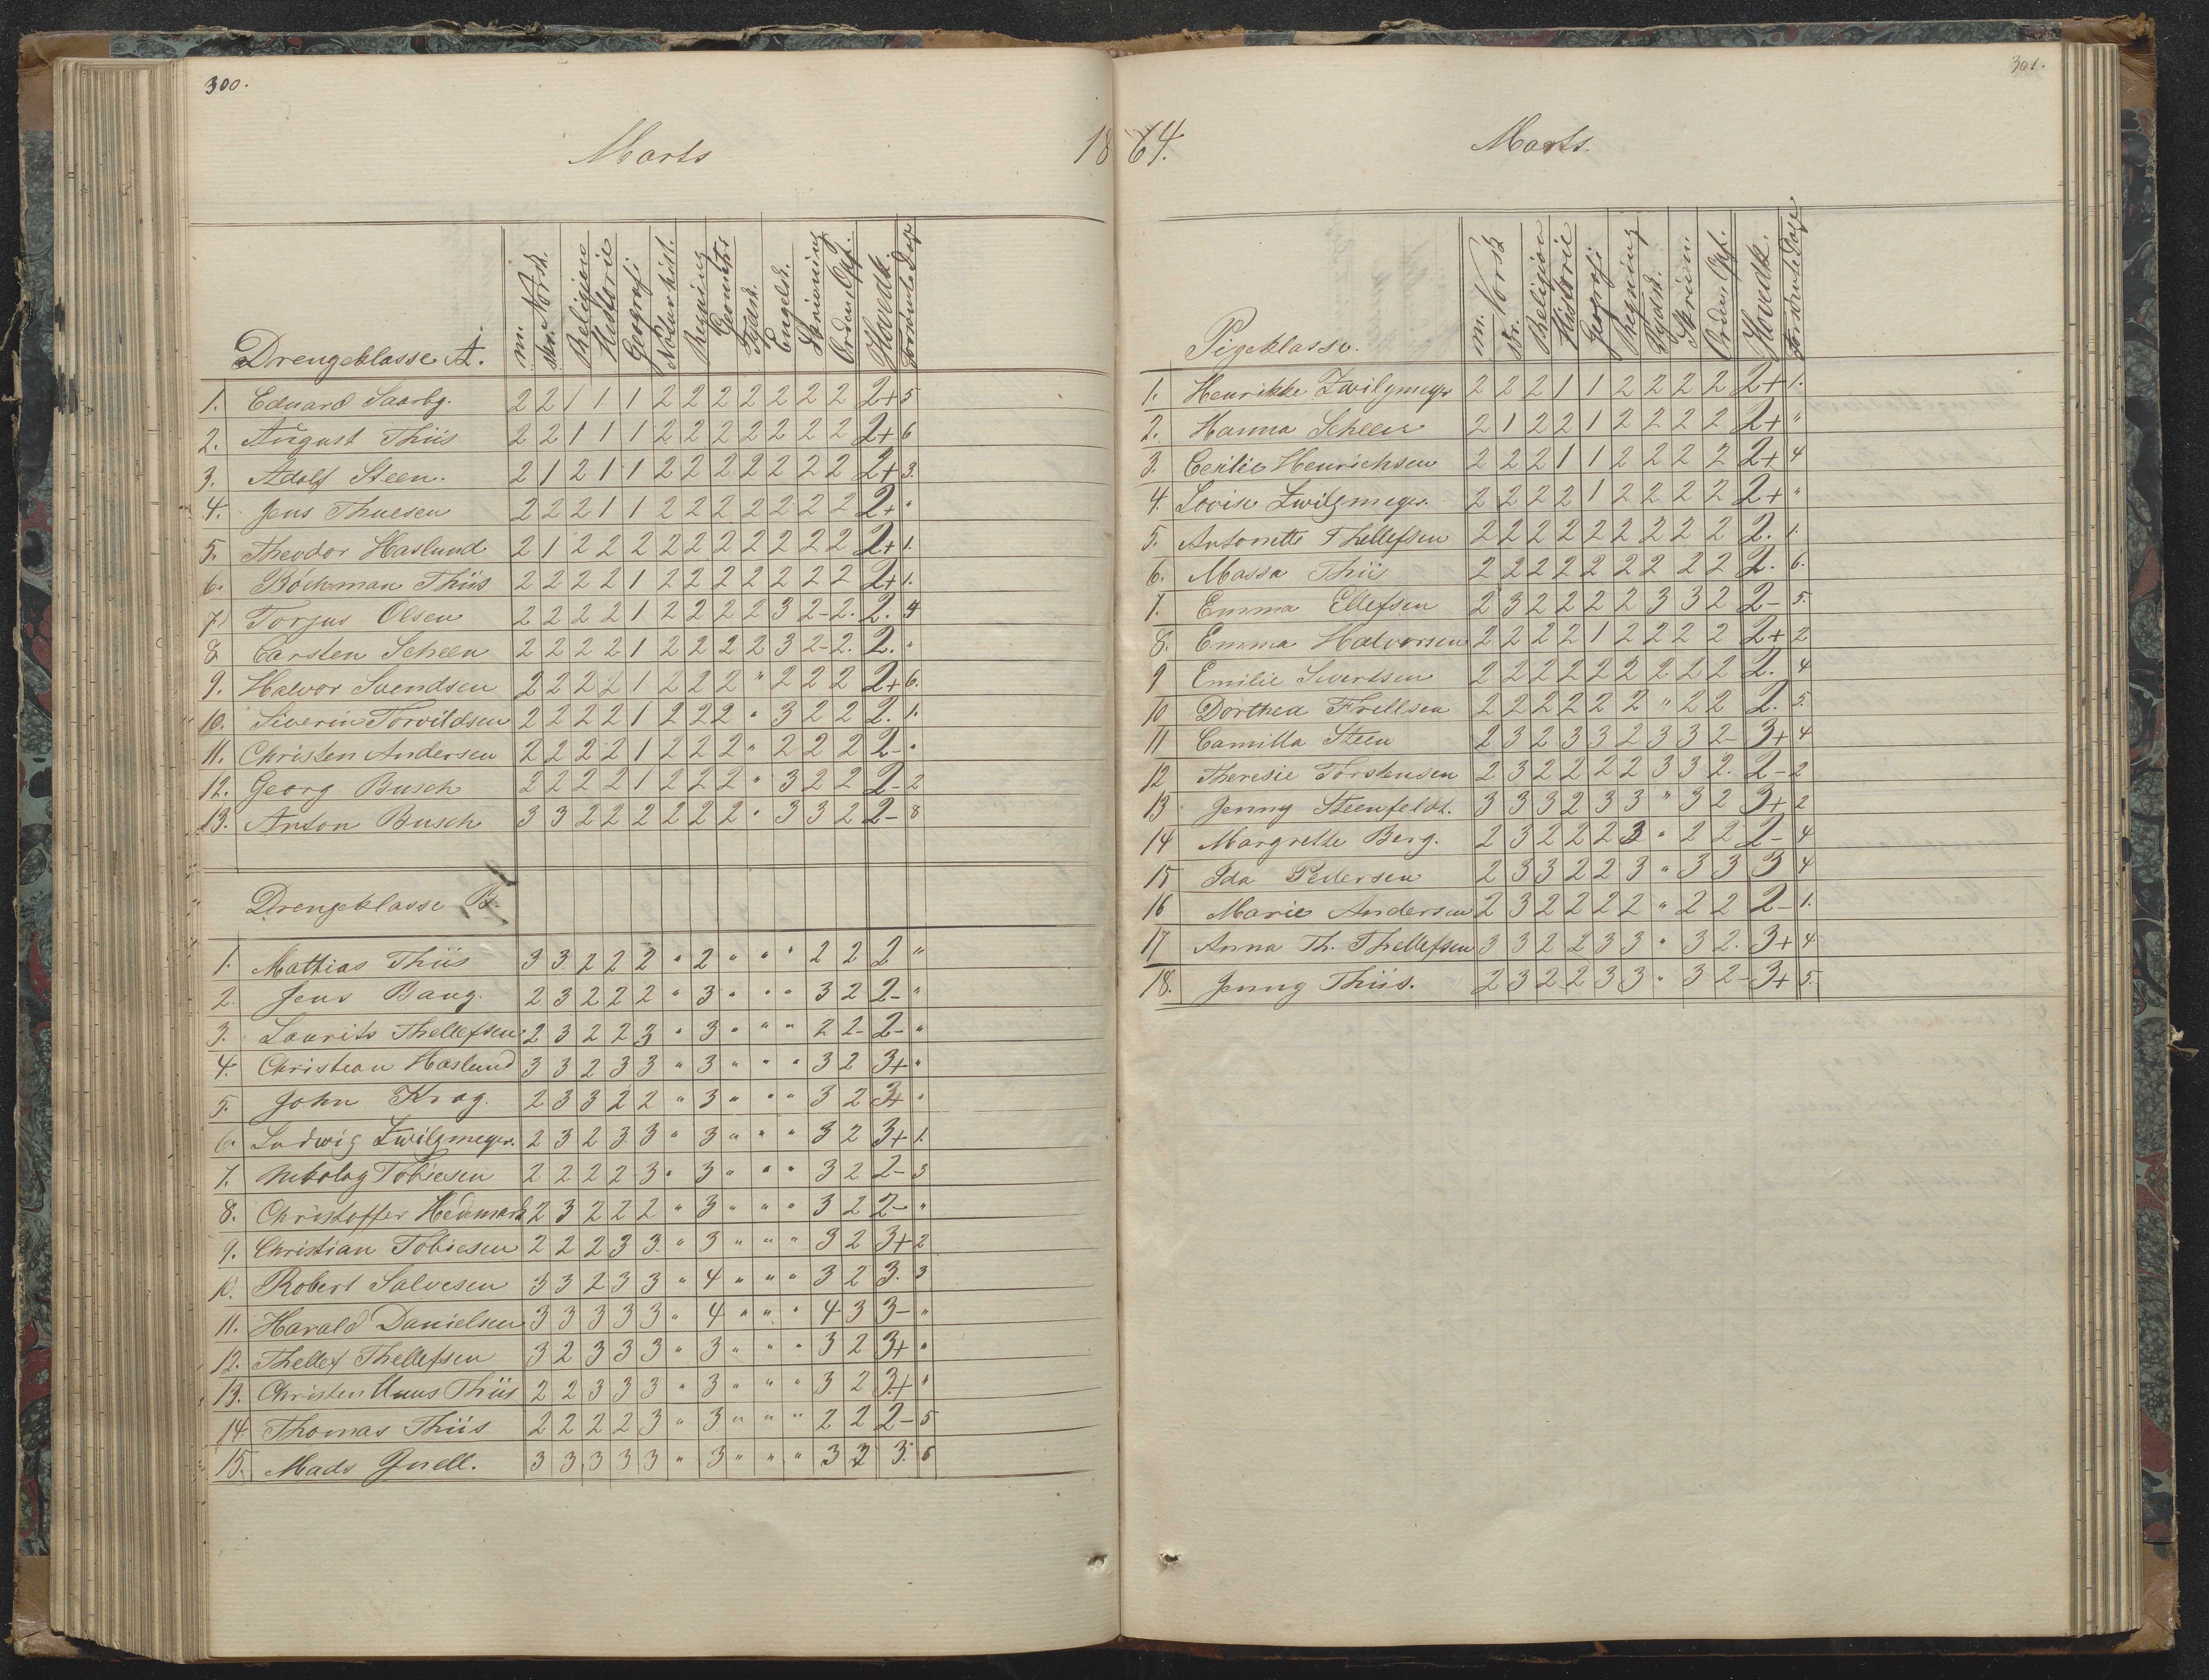 300.
Marts
18
Drengeklasse A.
m. Norsk.
skr.
Religion
Historie
Geografi
Naturhist.
Regning
Geometri
Tydsk.
Engelsk.
Skrivning
Orden, Opf.
Hovedk.
Forsømte Dage
1. Eduard Saarbg. 2 2 1 1 1 2 2 2 2 2 2 2 2+ 5
2. August Thiis 2 2 1 1 1 2 2 2 2 2 2 2 2+ 6
3. Adolf Steen. 2 1 2 1 1 2 2 2 2 2 2 2 2+ 3.
4. Jens Thuesen 2 2 2 1 1 2 2 2 2 2 2 2 2+ "
5. Theodor Haslund 2 1 2 2 2 2 2 2 2 2 2 2 2+ 1.
6. Böckman Thiis 2 2 2 2 1 2 2 2 2 2 2 2 2+ 1.
7. Torjus Olsen 2 2 2 2 1 2 2 2 2 3 2- 2. 2. 4
8. Carsten Scheen 2 2 2 2 1 2 2 2 2 3 2- 2. 2. "
9. Halvor Svendsen 2 2 2 2 1 2 2 2 " 2 2 2 2+ 6.
10. Siverin Torvildsen 2 2 2 2 1 2 2 2 " 3 2 2 2. 1.
11. Christen Andersen 2 2 2 2 1 2 2 2 " 2 2 2 2- "
12. Georg Busch 2 2 2 2 1 2 2 2 " 3 2 2 2- 2
13. Anton Busch 3 3 2 2 2 2 2 2 " 3 3 2 2- 8
Drengeklasse B.
1. Mathias Thiis 3 3 2 2 2 " 2 " " " 2 2 2 "
2. Jens Bang. 2 3 2 2 2 " 3 " " " 3 2 2- "
3. Laurits Thellefsen 2 3 2 2 3 " 3 " " " 2 2- 2- "
4. Christian Haslund 3 3 2 3 3 " 3 " " " 3 2 3+ "
5. John Krag. 2 3 3 2 2 " 3 " " " 3 2 3+ "
6. Ludwig Zwilgmeyer. 2 3 2 3 3 " 3 " " " 3 2 3+ 1.
7. Nikolay Tobiesen 2 2 2 2 3 " 3 " " " 3 2 2- 3
8. Christoffer Hedemark 2 3 2 2 2 " 3 " " " 3 2 2- "
9. Christian Tobiesen 2 2 2 3 3 " 3 " " " 3 2 3+ 2
10. Robert Salvesen 3 3 2 3 3 " 4 " " " 3 2 3. 3
11. Harald Danielsen 3 3 3 3 3 " 4 " " " 4 3 3- "
12. Thellef Thellefsen 3 2 3 3 3 " 3 " " " 3 2 3+ "
13. Christen Thiis 2 2 3 3 3 " 3 " " " 3 2 3+ "
14. Thomas Thiis 2 2 2 2 3 " 3 " " " 2 2 2- 5
15. Mads Guell. 3 3 3 3 3 " 3 " " " 3 2 3. 6
301.
64.
Marts.
Pigeklasse.
m. Norsk
skr.
Religion
Historie
Geografi
Regning
Tydsk.
Skrivn.
Orden, Opf.
Hovedk.
Forsømte Dage
1. Henrikke Zwilgmeyer 2 2 2 1 1 2 2 2 2 2+ 1.
2. Hanna Scheen 2 1 2 2 1 2 2 2 2 2+ "
3. Cecilie Henrichsen 2 2 2 1 1 2 2 2 2 2+ 4
4. Lovise Zwilgmeyer. 2 2 2 2 1 2 2 2 2 2+ "
5. Antonette Thellefsen 2 2 2 2 2 2 2 2 2 2. 1.
6. Massa Thiis 2 2 2 2 2 2 2 2 2 2. 6.
7. Emma Ellefsen 2 3 2 2 2 2 3 3 2 2- 5.
8. Emma Halvorsen 2 2 2 2 1 2 2 2 2 2+ 2
9 Emilie Sivertsen 2 2 2 2 2 2 2 2 2 2. 4
10 Dorthea Frellsen 2 2 2 2 2 2 " 2 2 2. 5.
11 Camilla Steen 2 3 2 3 3 2 3 3 2- 3+ 4
12 Theresie Torstensen 2 3 2 2 2 2 3 3 2. 2- 2
13 Jenny Steenfeldt. 3 3 3 2 3 3 " 3 2 3+ 2
14 Margrethe Berg. 2 3 2 2 2 3 " 2 2 2- 4
15 Ida Pedersen 2 3 3 2 2 3 " 3 3 3 4
16 Marie Andersen 2 3 2 2 2 2 " 2 2 2- 1.
17 Anna Th. Thellefsen 3 3 2 2 3 3 " 3 2. 3+ 4
18. Jenny Thiis. 2 3 2 2 3 3 " 3 2- 3+ 5.